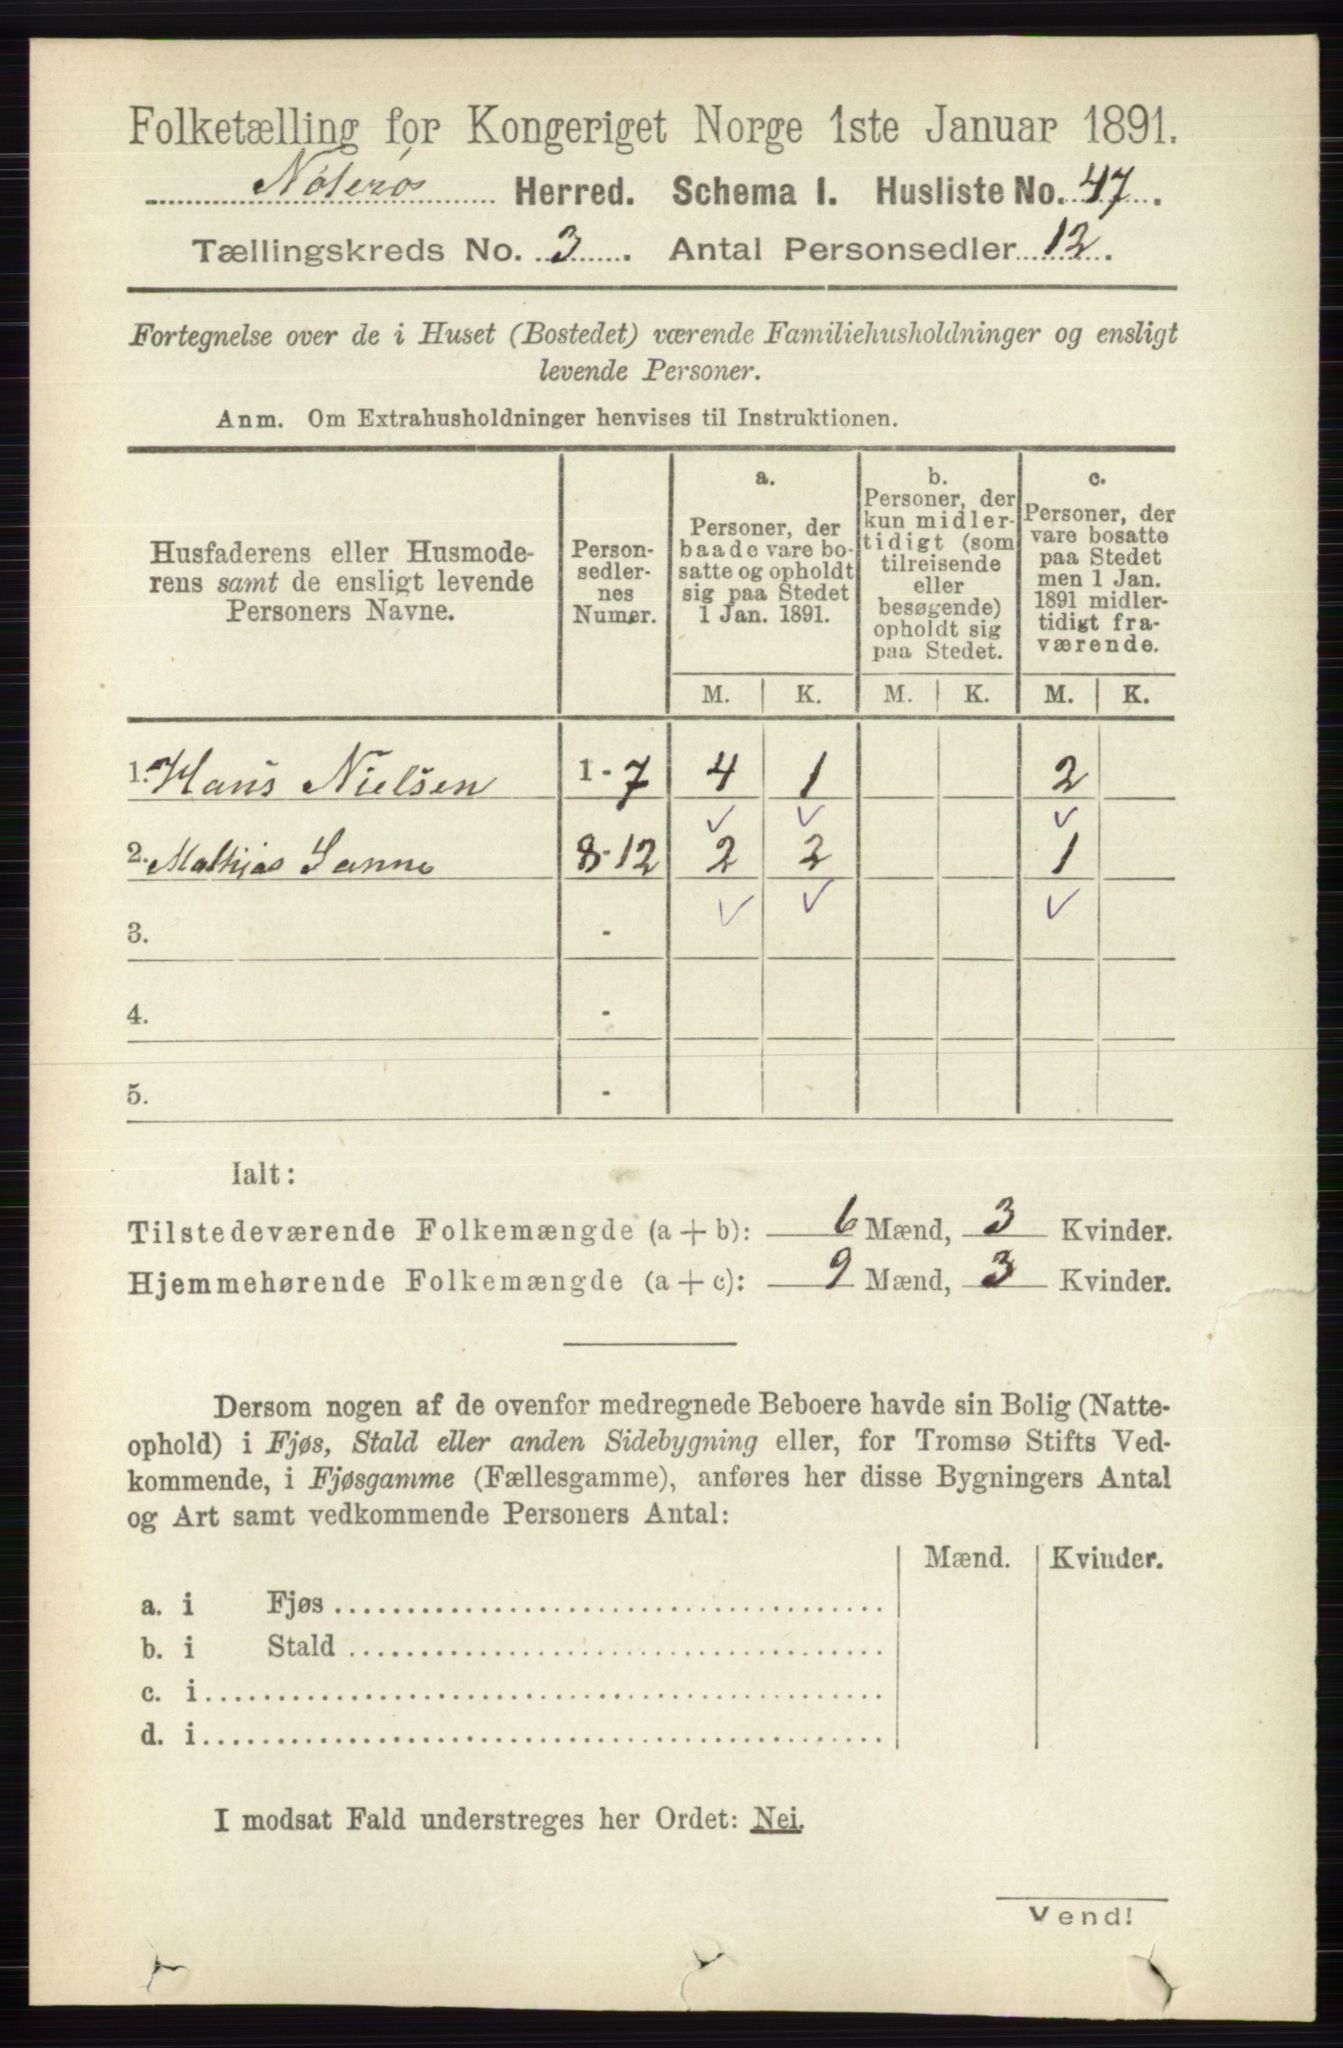 Folketælling for Kongeriget Norge 1ste Januar 1891.
Nøterøs Herred. Schema I. Husliste No. 47.
Tællingskreds No. 3. Antal Personsedler 12.
Fortegnelse over de i Huset (Bostedet) værende Familiehusholdninger og ensligt
levende Personer.
Anm. Om Extrahusholdninger henvises til Instruktionen.
Husfaderens eller Husmode-
rens samt de ensligt levende
Personers Navne.
Person-
sedler-
nes
Numer.
a.
Personer, der
baade vare bo-
satte og opholdt
sig paa Stedet
1 Jan. 1891.
b.
Personer, der
kun midler-
tidigt (som
tilreisende
eller
besøgende)
opholdt sig
paa Stedet.
c.
Personer, der
vare bosatte
paa Stedet
men 1 Jan.
1891 midler-
tidigt fra-
værende.
M. K. M. K. M. K.
1. Hans Nielsen 1-7 4 1 2
2. Mathias Sanne 8-12 2 2 1
3. -
4. -
5. -
Ialt:
Tilstedeværende Folkemængde (a + b): 6 Mænd, 3 Kvinder.
Hjemmehørende Folkemængde (a + c): 9 Mænd, 3 Kvinder.
Dersom nogen af de ovenfor medregnede Beboere havde sin Bolig (Natte-
ophold) i Fjøs, Stald eller anden Sidebygning eller, for Tromsø Stifts Ved-
kommende, i Fjøsgamme (Fællesgamme), anføres her disse Bygningers Antal
og Art samt vedkommende Personers Antal:
Mænd. Kvinder.
a. i Fjøs
b. i Stald
c. i
d. i
I modsat Fald understreges her Ordet: Nei.
Vend!